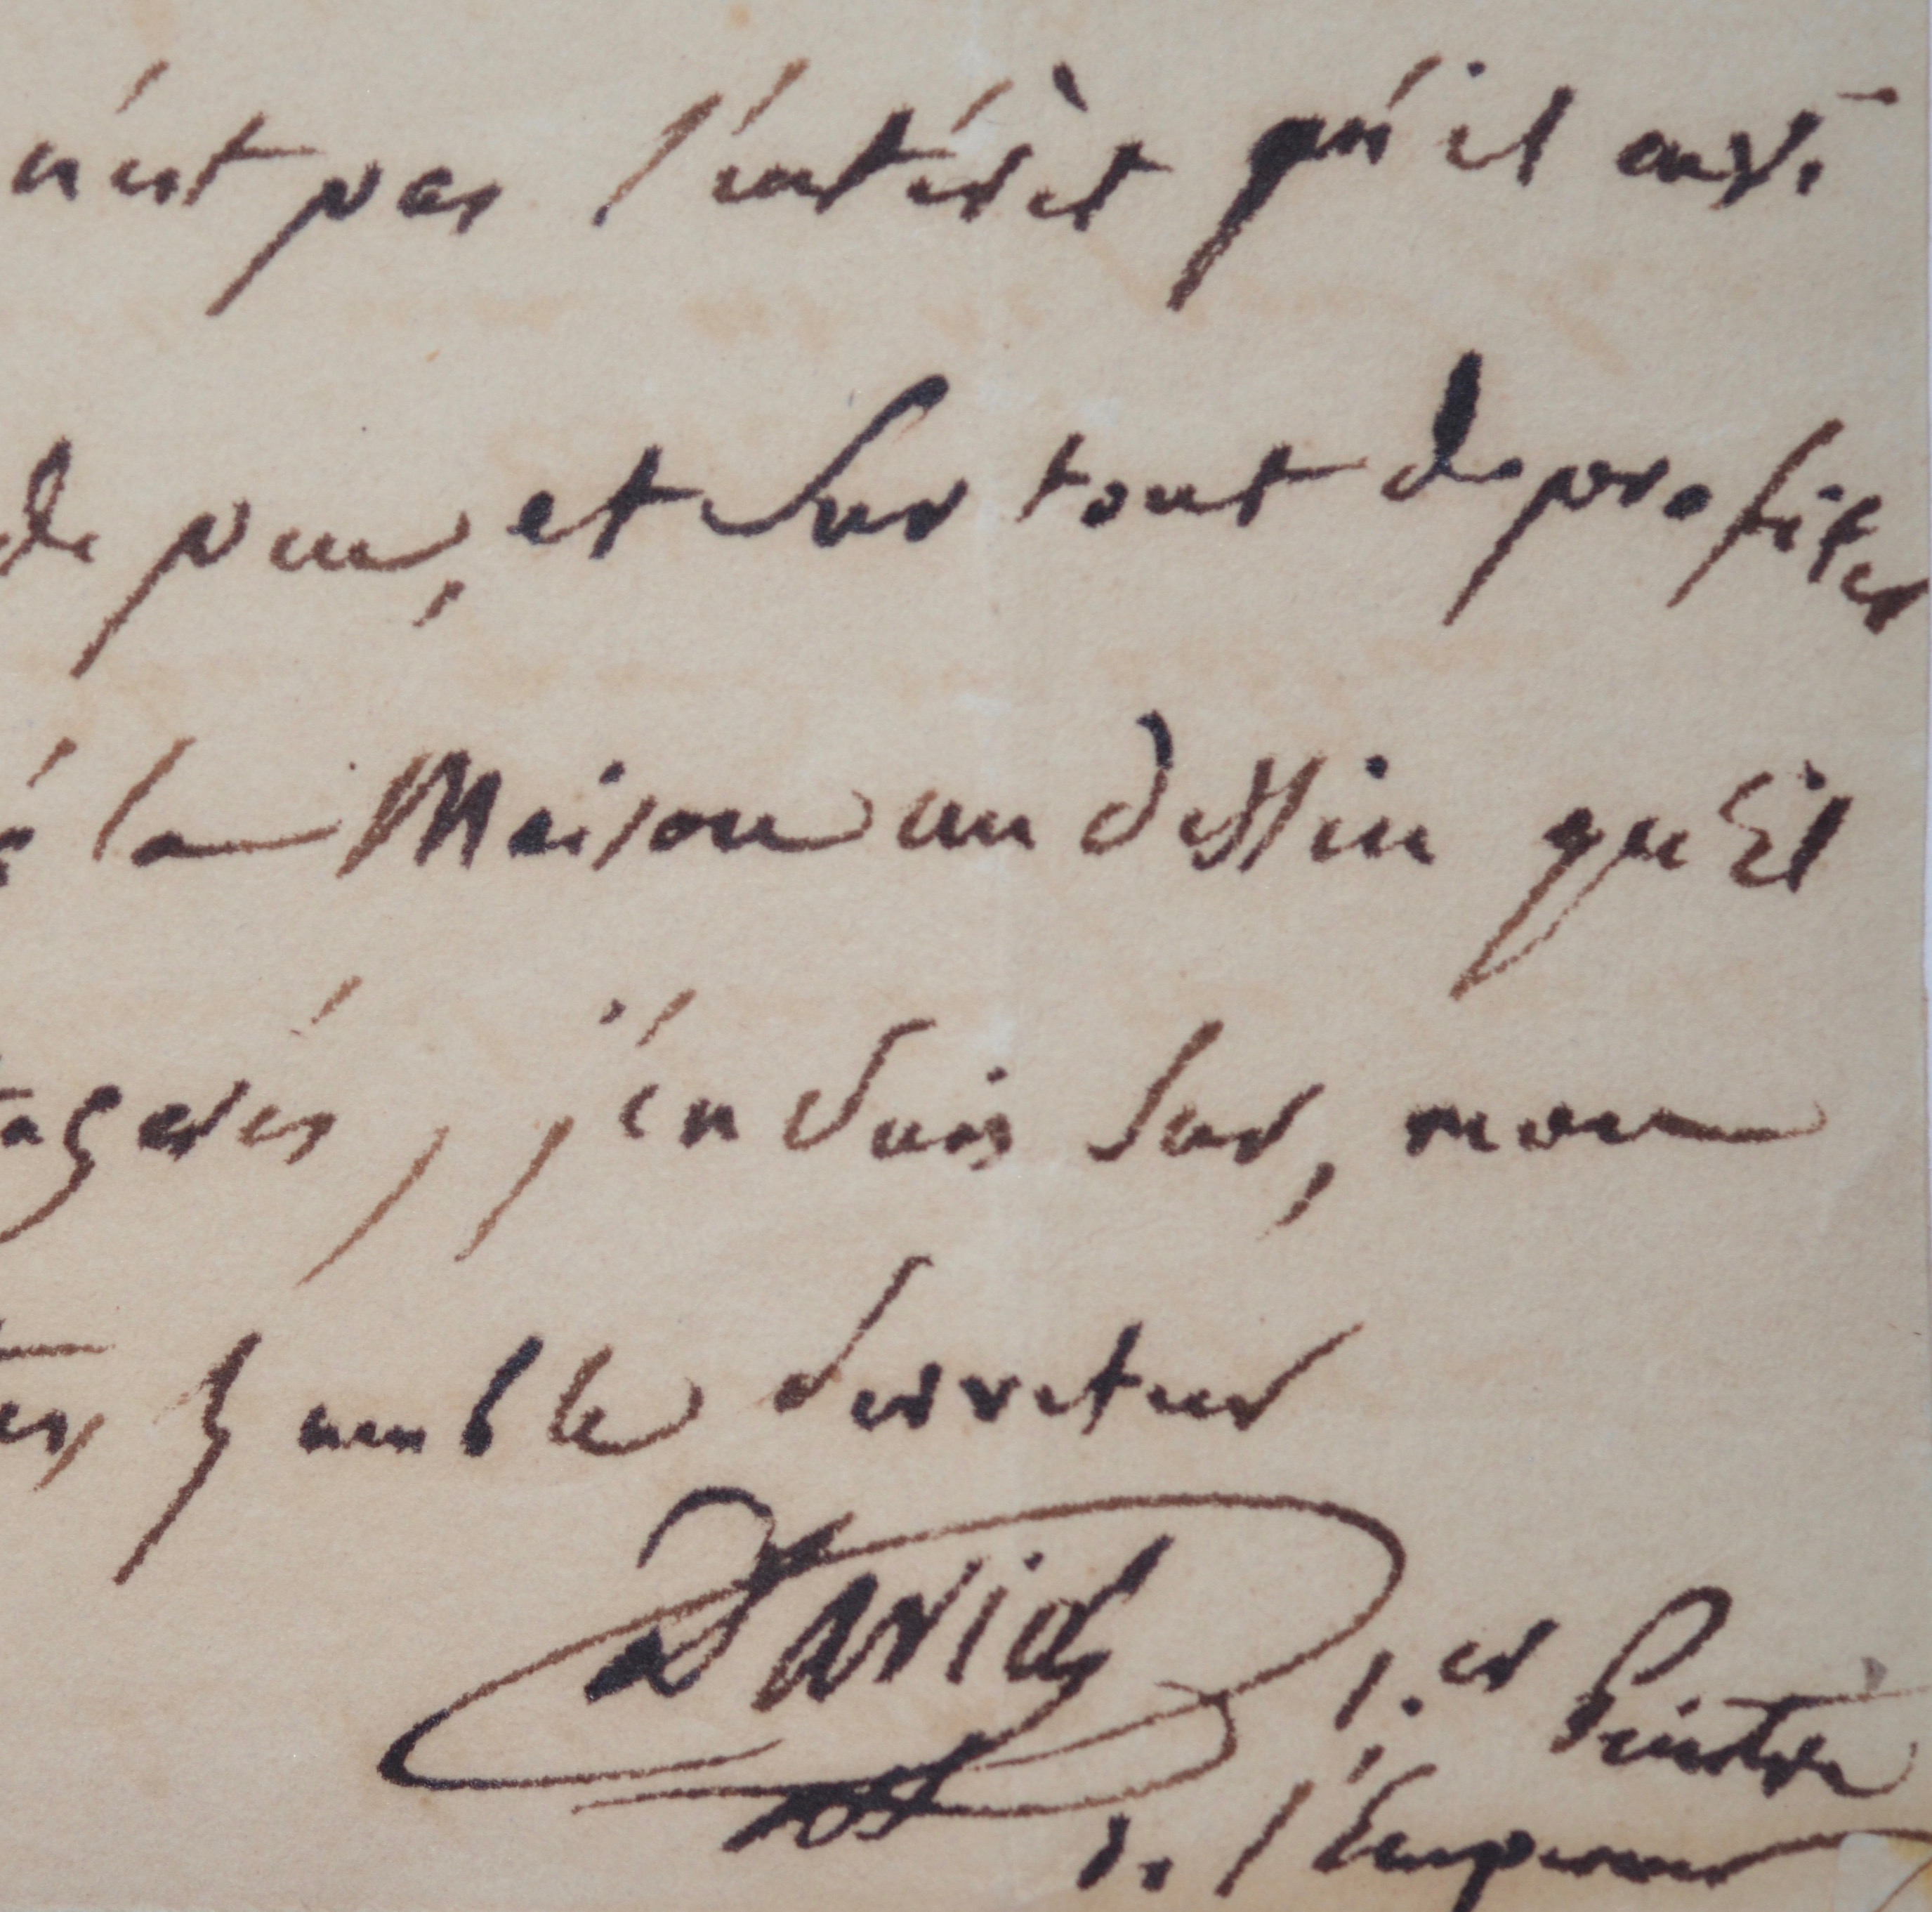 n'est pas l'intérèt qu'il
de peu, et sur tout de profiter
la Maison un dessin qu'il
j'en suis sur, mon
humble serviteur
David 1.er Peintre
de l'Empereur